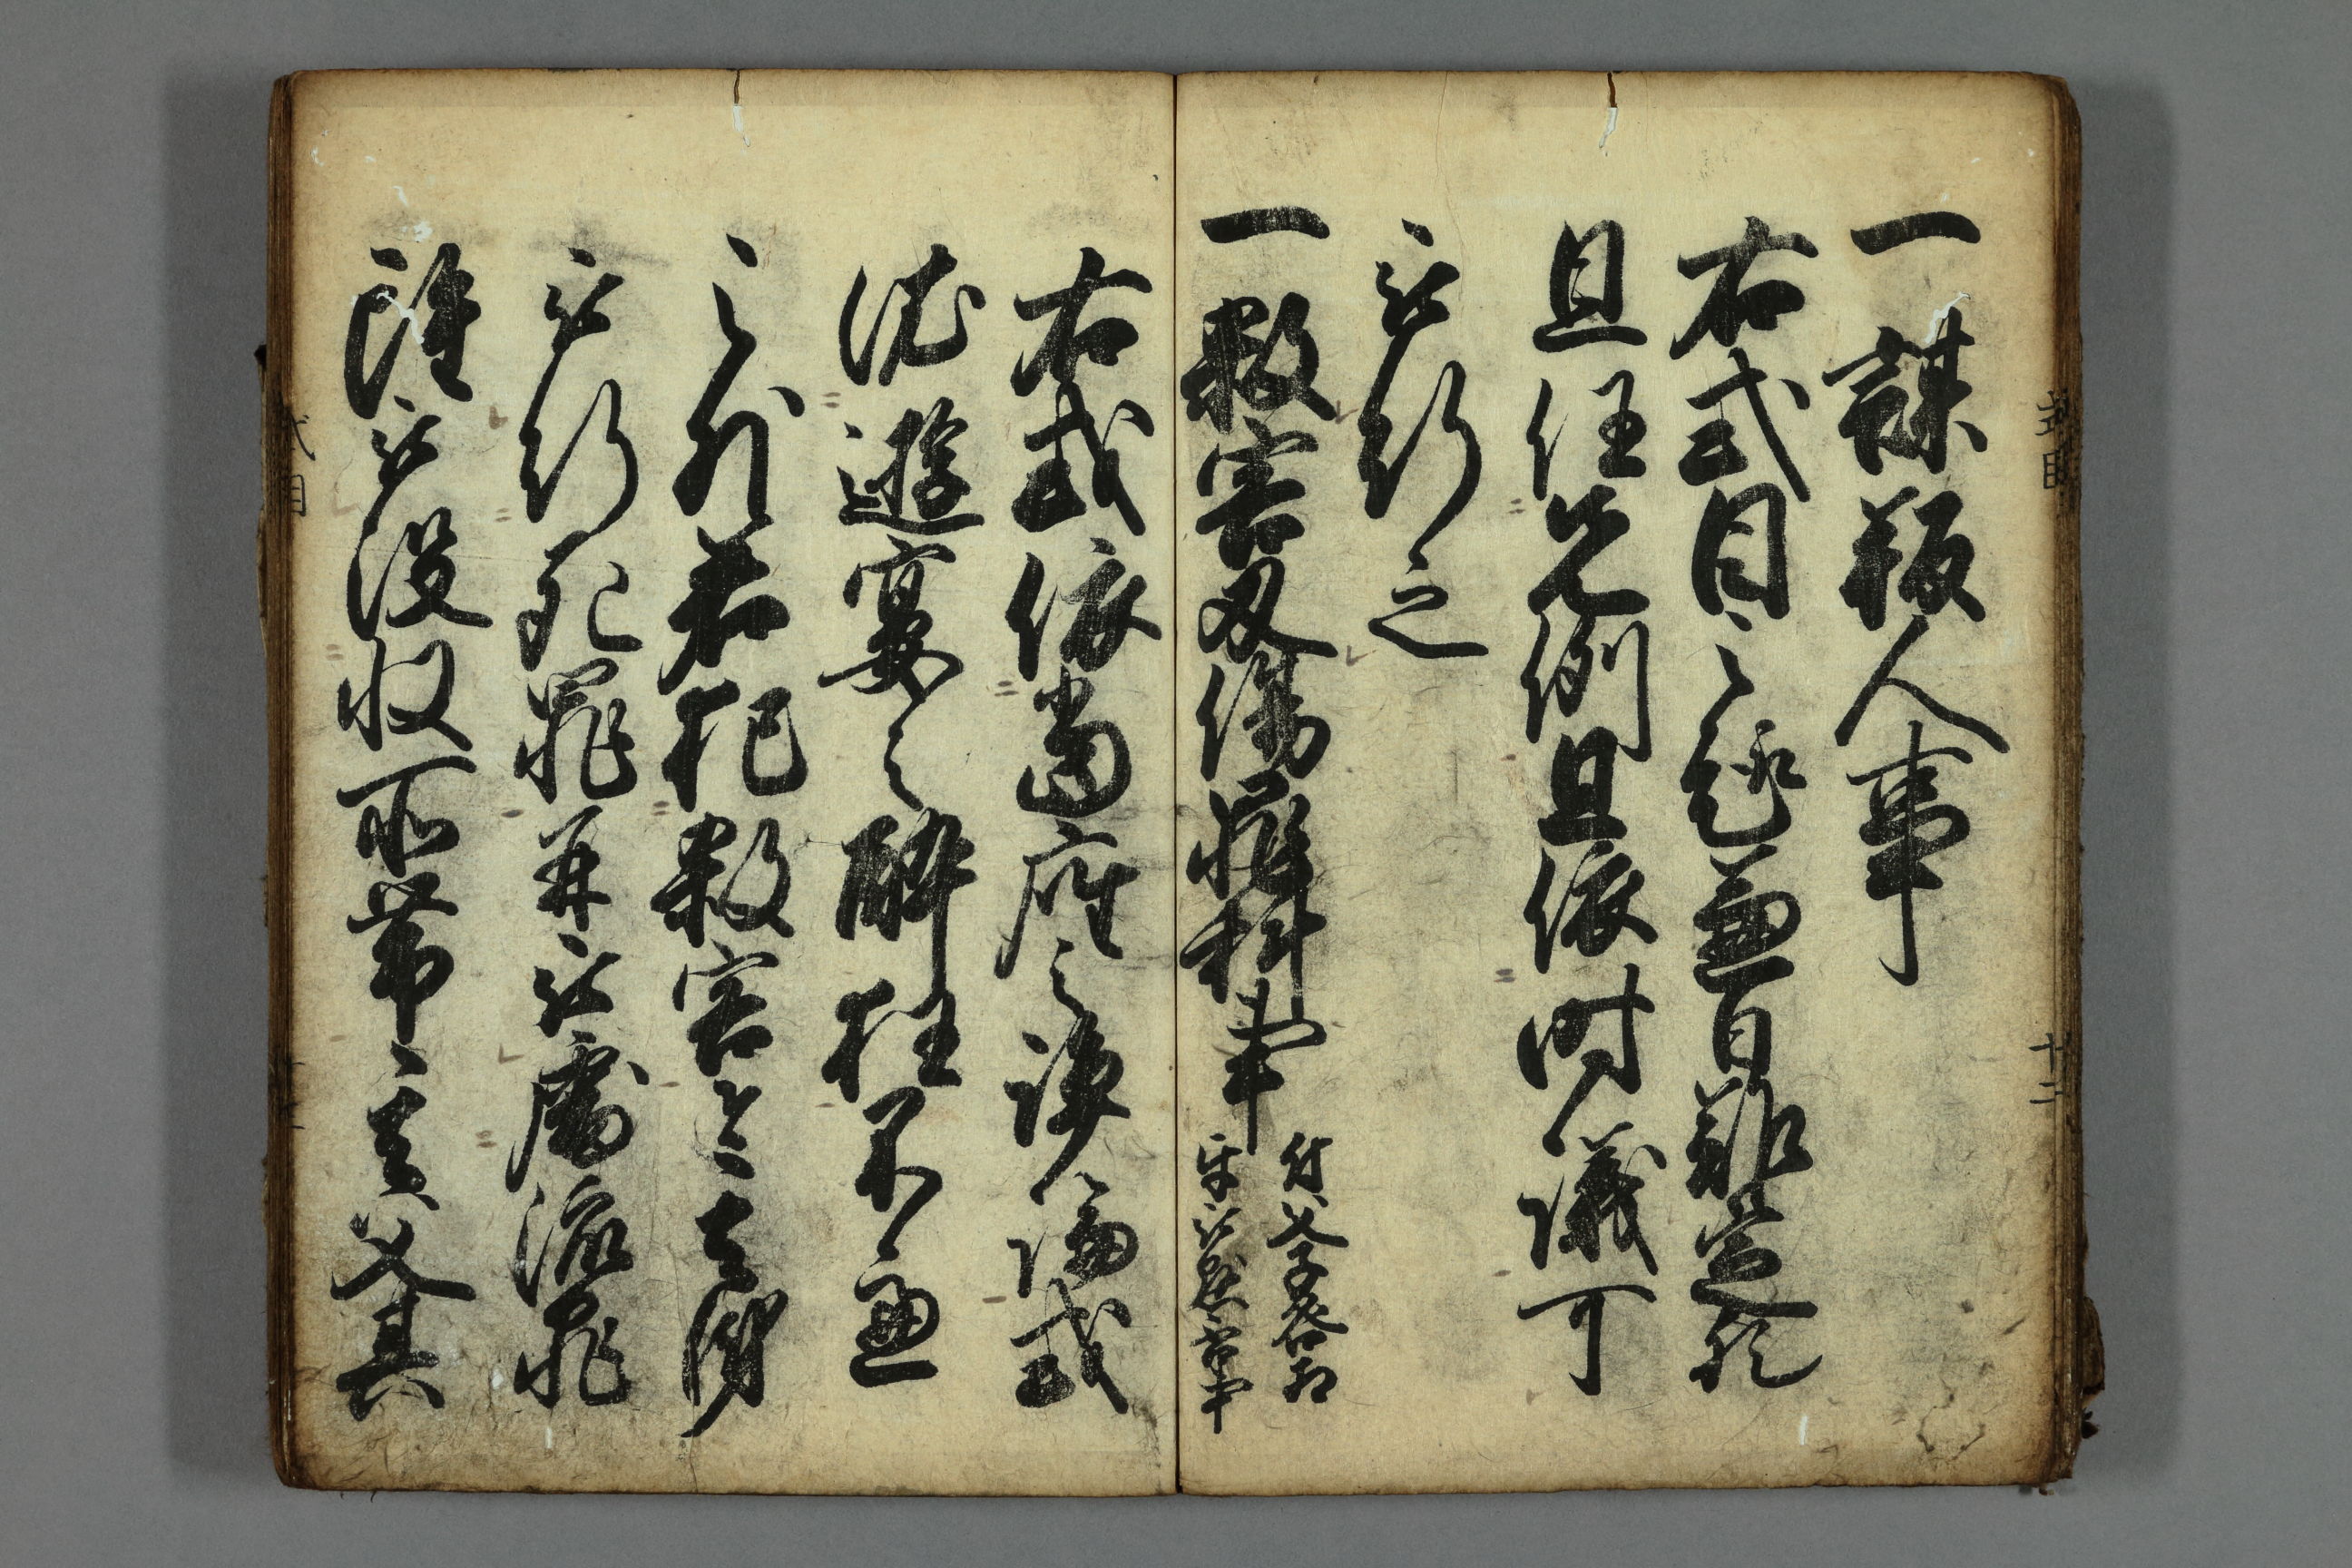 一謀叛人事
右式目之趣兼日難定歟
且任先例且依時議可
被行之
一殺害刃傷罪科事
付父子咎相
互被懸否事
右或依當座之諍論或
依遊宴之酔狂不慮
之外若犯殺害者其身
被行死罪并被處流罪
雖被没収所帯其父其
式目
十二
式目